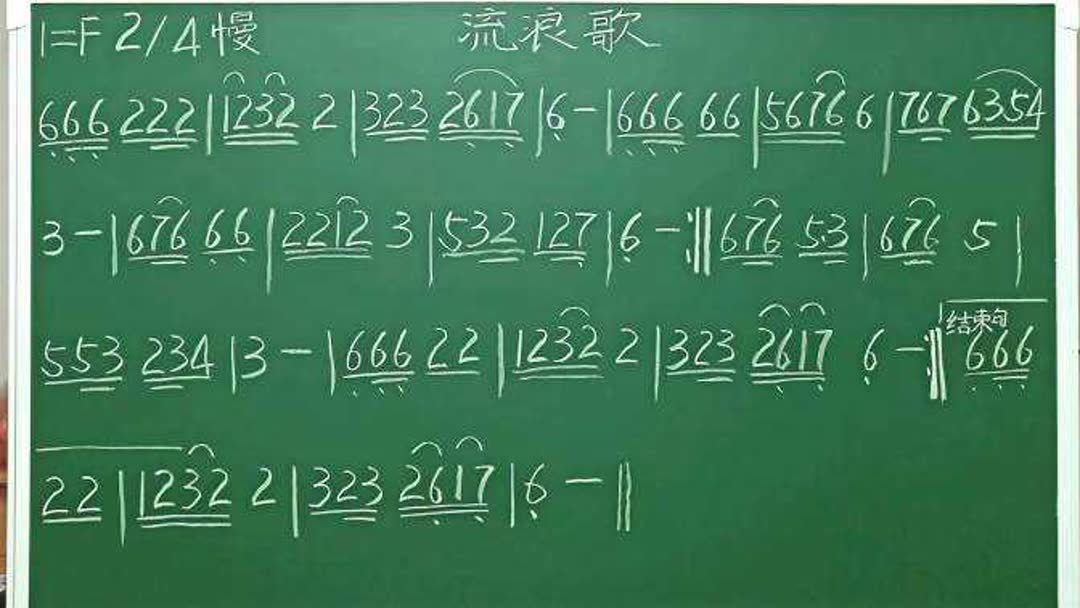 1=F 2/4 慢 流浪歌
666 222 | 1232 2 | 323 2617 | 6 - | 666 66 | 5676 6 | 767 6354
3 - | 676 66 | 2212 3 | 532 127 | 6 - :‖ 676 53 | 676 5 |
553 234 | 3 - | 666 22 | 1232 2 | 323 2617 6 - :‖ 结束句 666
22 | 1232 2 | 323 2617 | 6 - ‖